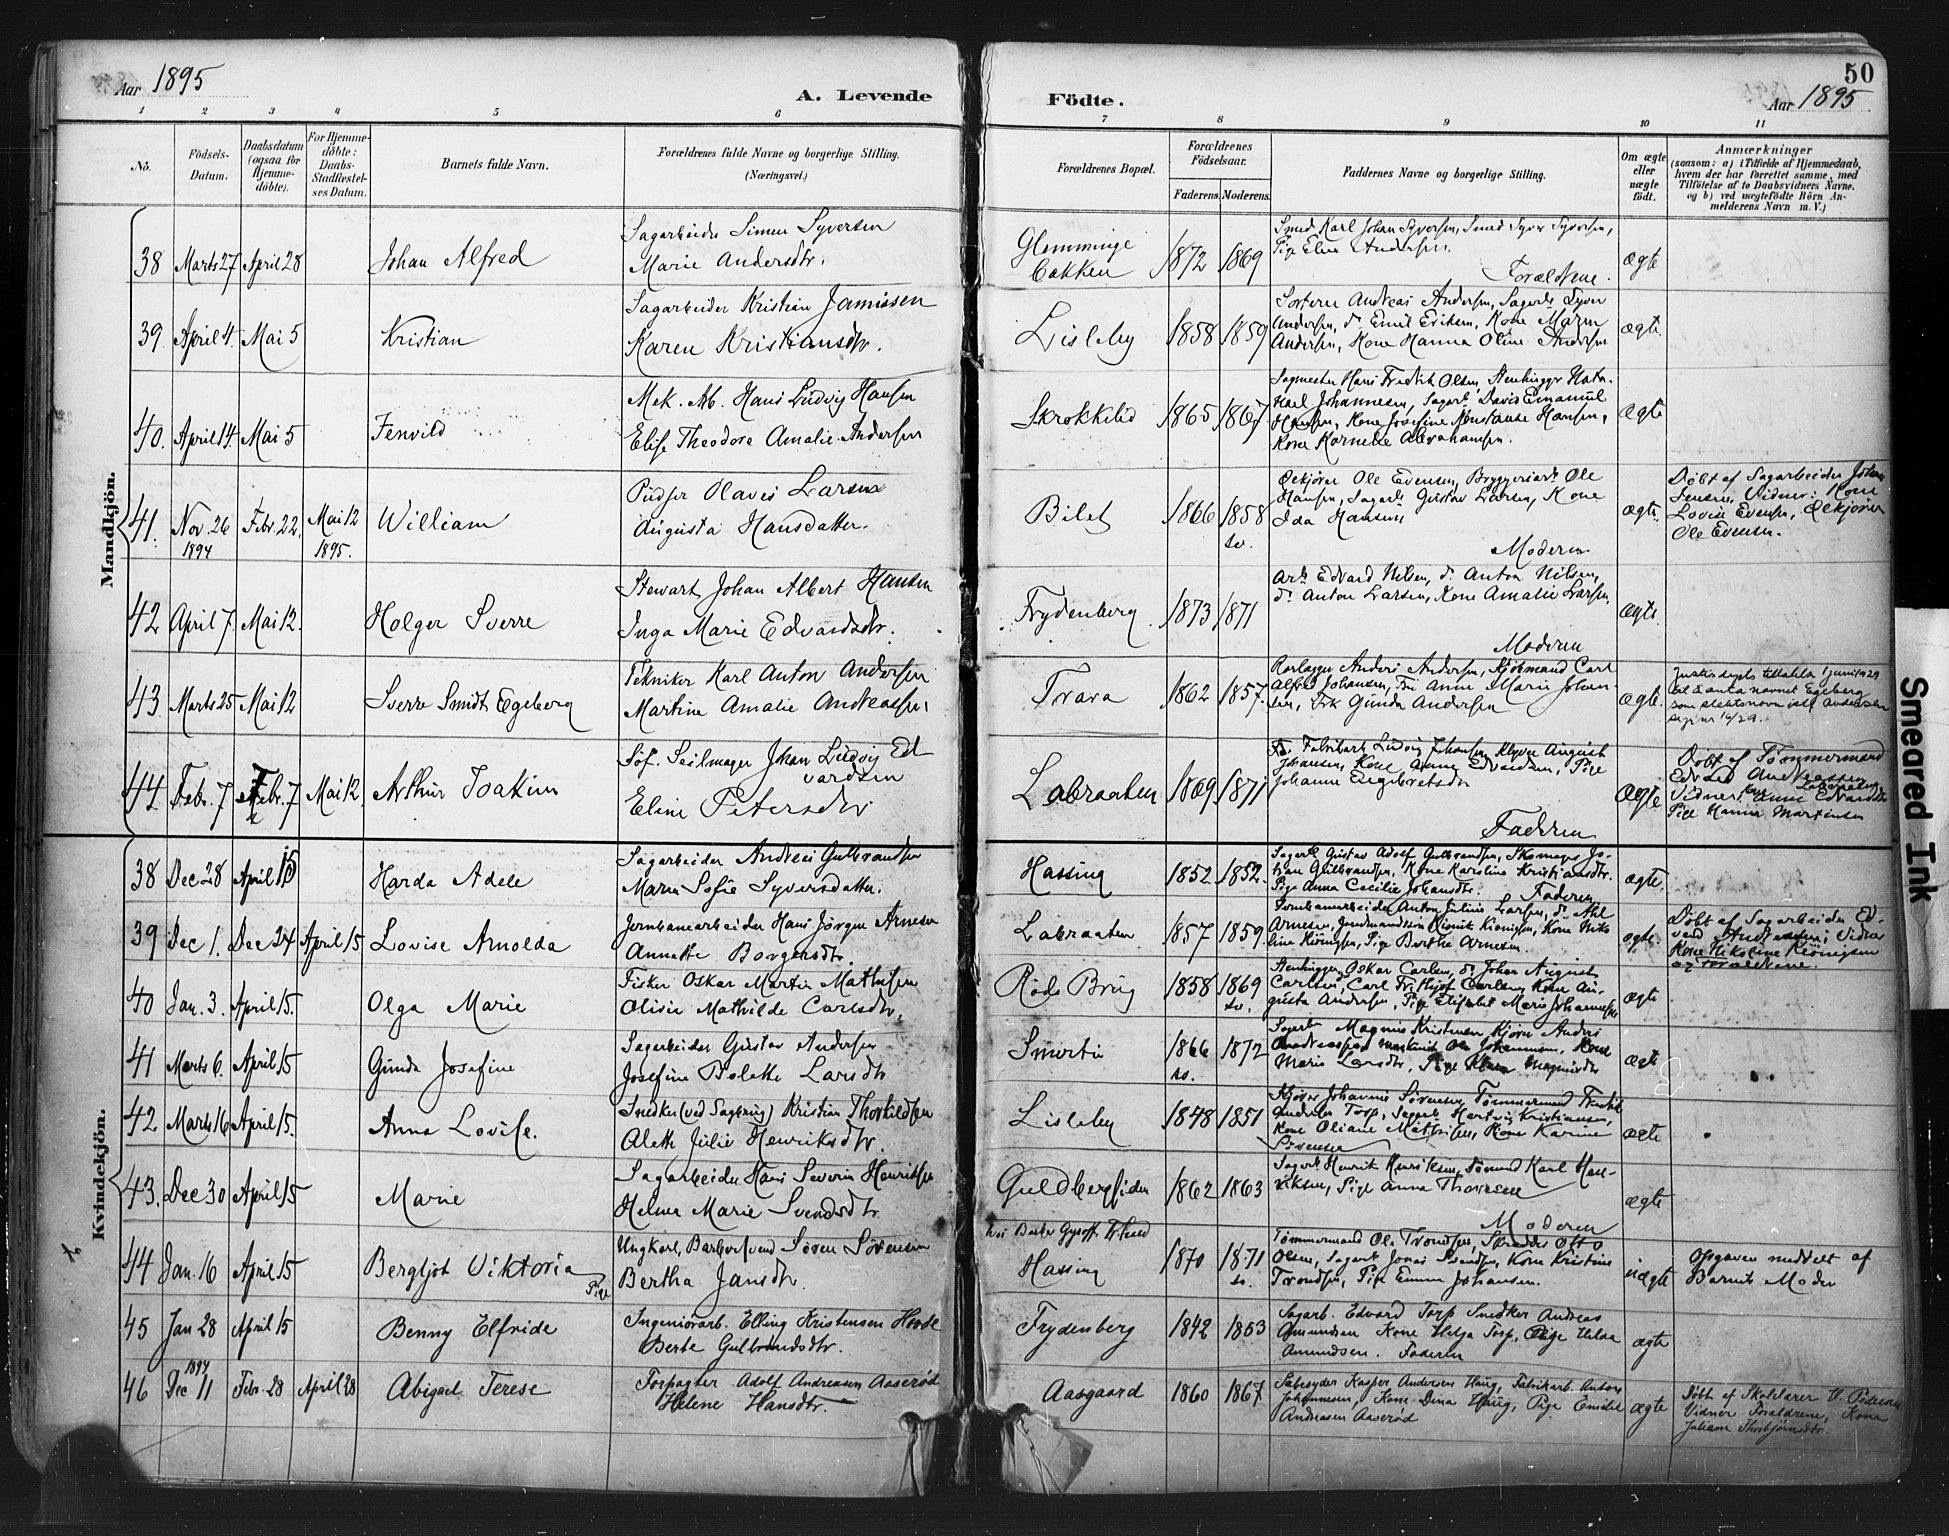 Aar 1895
A. Levende Födte.
50
Aar 1895
1 2 3 4 5 6 7 8 9 10 11
No.
Födsels-
Datum.
Daabsdatum
(ogsaa for
Hjemme-
döbte).
For Hjemme-
döbte:
Daabs-
Stadfæstel-
ses Datum.
Barnets fulde Navn.
Forældrenes fulde Navne og borgerlige Stilling.
(Næringsvei.)
Forældrenes Bopæl.
Forældrenes
Födselsaar.
Faderens. Moderens.
Faddernes Navne og borgerlige Stilling.
Om ægte
eller
uægte
födt.
Anmærkninger
(saasom: a) i Tilfælde af Hjemmedaab,
hvem der har forrettet samme, med
Tilföielse af to Daabsvidners Navne,
og b) ved uægtefödte Börn An-
melderens Navn m. V.)
Mandkjön.
38 Marts 27 April 28 Johan Alfred
Sagarbeider Simen Syversen
Marie Andersdtr.
Glemminge
bakken
1872 1869
Smed Karl Johan Syversen, Smed Syver Syversen,
Pige Elen Andersen.
Forældrene.
ægte
39. April 4. Mai 5 Kristian
Sagarbeider Kristian Jamissen
Karen Kristiansdtr.
Lisleby
1858 1859
Sorterer Andreas Andersen, Sagarb. Syver
Andersen, do Emil Eriksen, Kone Maren
Andersen, Kone Hanna Oline Andersen
ægte.
40. April 14. Mai 5 Fenvild
Mek. Arb. Hans Ludvig Hansen
Elise Theodore Amalie Andersen
Skrokkelid
1865 1867
Sagmester Hans Fredrik Olsen, Stenhugger
Karl Johannesen, Sagarb. David Emanuel
Hansen, Kone Josefine Konstanse Hansen,
Kone Kornelie Abrahamsen.
ægte
41. Nov. 26 1894 Febr. 22. Mai 12 1895. William
Pudser Olavis Larsen
Augusta Hansdatter.
Bilet
1866 1858
sv.
Ølkjører Ole Evensen, Bryggeriarb. Ole
Hansen, Sagarb. Gustav Larsen, Kone
Ida Hansen
Moderen
ægte.
Døbt af Sagarbeider Johan
Jensen, Vidner: Kone
Lovise Evensen, Ølkjører
Ole Evensen.
42 April 7. Mai 12. Holger Sverre
Stewart Johan Albert Hansen
Inga Marie Edvardsdtr.
Frydenberg
1873 1871
Arb. Edvard Nilsen, do Anton Nilsen,
do Anton Larsen, Kone Amalie Larsen,
Moderen
ægte.
43 Marts 25 Mai 12 Sverre Smidt Egeberg
Tekniker Karl Anton Andersen
Martine Amalie Andreassen,
Trara
1862 1857.
Rørlægger Anders Andersen, Kjøbmand Carl
Alfred Johansen, Fru Anna Marie Johan-
sen, Frk Gunda Andersen
ægte.
Justisdepts tillatelse 1 juni 1929
til å anta navnet Egeberg
som slektsnavn istf. Andersen
44 Febr. 7 Febr. 7 Mai 12 Arthur Joakim
Søf. Seilmager Johan Ludvig Ed
vardsen
Eline Petersdtr
Labraaten
1869 1871
Fabrikarb. Ludvig Johansen, Klyver August
Johansen, Kone Anna Edvardsen, Pige
Johanne Engebretsdtr
Faderen
ægte
Døbt af Tømmermand
Edvard Andreassen
Labraaten
Vidner: Kone Anne Edvardsdtr
Pige Hanna Martinsen
Kvindekjön.
38 Dec 28 April 15 Harda Adele
Sagarbeider Andreas Gulbrandsen
Maren Sofie Syversdatter.
Hassing
1852 1852.
Sagarb. Gustav Adolf Gulbrandsen, Skomager Jo-
han Gulbrandsen, Kone Karoline Kristiansdtr.
Pige Anna Cecilie Johansdtr.
Faderen
ægte.
39 Dec 1. Dec 24 April 15 Lovise Arnolda
Jernbanearbeider Hans Jørgen Arnesen
Annette Borgersdtr.
Labraaten
1857 1859.
Jernbanearbeider Anton Julius Larsen, do Ahl
Arnesen, Kone Niko
line Kiønigsen, Pige Berthe Arnesen.
ægte.
Døbt af Sagarbeider Ed-
vard Andersen; Vidner
Kone Nikoline Kiönigsen
og Forældrene.
40 Jan. 3. April 15. Olga Marie
Fisker Oskar Martin Mathisen
Olivie Mathilde Carlsdtr.
Røds Brug
1858 1869
sv.
Stenhugger Oskar Carlsen, do Johan August
Carlsen, Carl Frithjof Carlsen, Kone Au-
gusta Andersen, Pige Elisabet Marie Johannesen
ægte
41 Marts 6. April 15 Gunda Josefine
Sagarbeider Gustav Andersen
Josefine Bolette Larsdtr
Smertu
1866 1872
no.
Sagarb. Magnus Kristensen Kjører Anders
Andreassen Ole Johannesen, Kone
Maria Larsdtr, Pige Magnusdtr
ægte
42 Marts 16 April 15. Anna Lovise.
Snedker (ved Sagbrug) Kristian Thorkildsen
Aleth Julie Henriksdtr.
Lisleby
1848 1851
Kjører Johannes Sörensen, Tømmermand Fredrik
Andersen Torp, Sagarb. Hartvig Kristiansen,
Kone Oliane Mathisen, Kone Karine
Sörensen
ægte
43. Dec 30 April 15 Marie
Sagarbeider Hans Severin Henriksen
Helma Marie Svendsdtr.
Guldbergsiden
1862 1863
Sagarb. Henrik Henriksen, Sømand Karl Hen-
riksen, Pige Anna Thoresen
Moderen
ægte
44 Jan. 16 April 15 Bergljot Viktoria
Ungkarl, Barbersvend Søren Sørensen
Pige Bertha Jansdtr.
Hassing
1870 1871
sv.
Tømmermand Ole Trondsen, Skrædder Otto
Olsen, Sagarb. Jonas Svendsen, Kone Kristine
Trondsen, Pige Emma Johansen.
uægte
Opgaven meddelt af
Barnets Moder
45 Jan 28 April 15 Benny Elfride
Ingeniörarb. Elling Kristensen Hovde
Berte Gulbrandsdtr.
Frydenberg
1842 1853
Sagarb. Edvard Torp Snedker Andreas
Amundsen Kone Helga Torp, Pige Hilda
Amundsen. Faderen
ægte
46 1894 Dec 11 Febr. 28 April 28 Abigael Terese
Forpagter Adolf Andreasen Aaserød
Helene Hansdtr.
Aasgaard
1860 1867
Sæbesyder Kasper Andersen Haug, Fabrikarb. Anton
Johannesen, Kone Dina Haug, Pige Emilie
Andreasen Aaserød
ægte
Døbt af Skolelærer H. Pedersen
Vidner Forældrene, Kone
Juliane Thorbjørnsdtr.
Smeared Ink